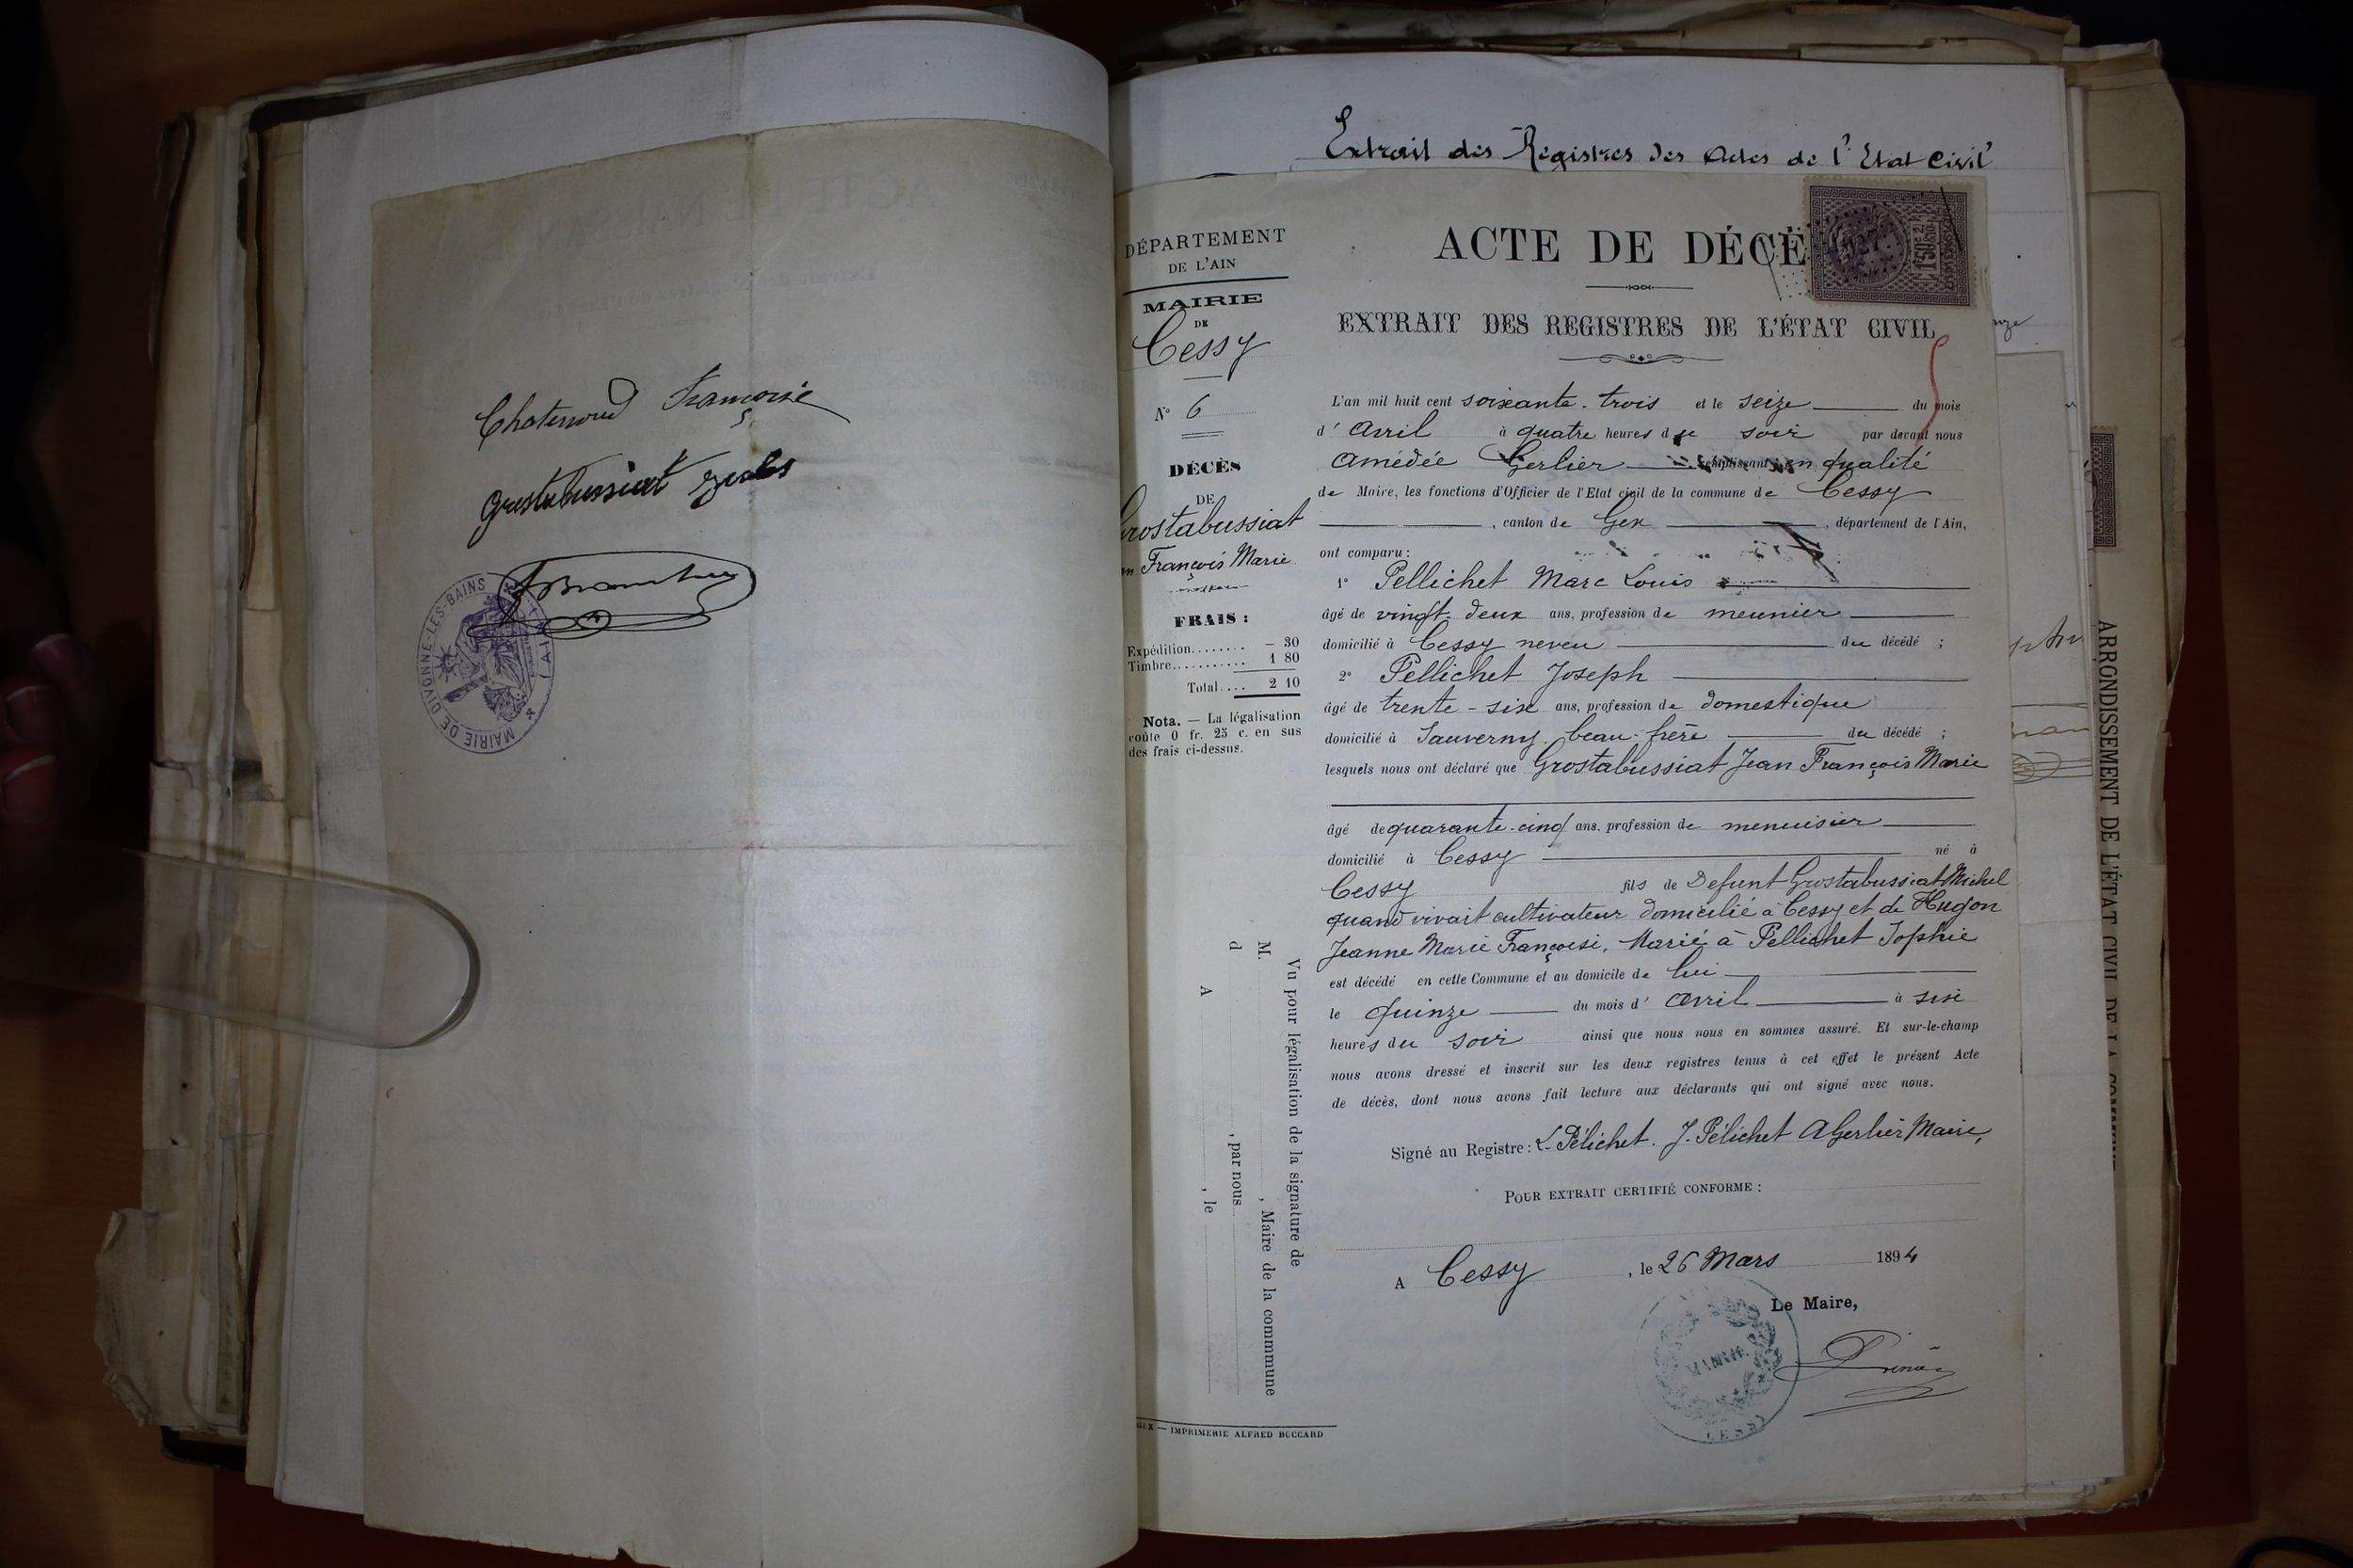 Chatenoud Françoise
Grostabussiat Jules
MAIRIE DE DIVONNE-LES-BAINS
(AIN)
Extrait des Registres des Actes de l'Etat Civil
DÉPARTEMENT
DE L'AIN
MAIRIE
DE
Cessy
N° 6
DÉCÈS
DE
Grostabussiat
François Marie
FRAIS :
Expédition........ – 30
Timbre........... 1 80
Total.... 2 10
Nota. — La légalisation
coûte 0 fr. 25 c. en sus
des frais ci-dessus.
Vu pour légalisation de la signature de
M. , Maire de la commmune
d , par nous
A , le
GEX — IMPRIMERIE ALFRED BOCCARD
ACTE DE DÉCÈ
EXTRAIT DES REGISTRES DE L'ÉTAT CIVIL
L'an mil huit cent soixante-trois et le seize du mois
d'Avril à quatre heures du soir par devant nous
Amédée Gerlier remplissant en qualité
de Maire, les fonctions d'Officier de l'Etat civil de la commune de Cessy
, canton de Gex , département de l'Ain,
ont comparu :
1° Pellichet Marc Louis
âgé de vingt-deux ans, profession de meunier
domicilié à Cessy neveu du décédé ;
2° Pellichet Joseph
âgé de trente-six ans, profession de domestique
domicilié à Sauverny beau-frère du décédé ;
lesquels nous ont déclaré que Grostabussiat Jean François Marie
âgé de quarante-cinq ans, profession de menuisier
domicilié à Cessy né à
Cessy fils de Defunt Grostabussiat Michel
quand vivait cultivateur domicilié à Cessy et de Hugon
Jeanne Marie Françoise, Marié à Pellichet Sophie
est décédé en cette Commune et au domicile de lui
le quinze du mois d'avril à six
heures du soir ainsi que nous nous en sommes assuré. Et sur-le-champ
nous avons dressé et inscrit sur les deux registres tenus à cet effet le présent Acte
de décès, dont nous avons fait lecture aux déclarants qui ont signé avec nous.
Signé au Registre : L. Pélichet. J. Pélichet A Gerlier Maire,
POUR EXTRAIT CERTIFIÉ CONFORME :
A Cessy , le 26 Mars 1894
Le Maire,
MAIRIE
CESSY
ARRONDISSEMENT DE L'ÉTAT CIVIL DE LA COMMUNE